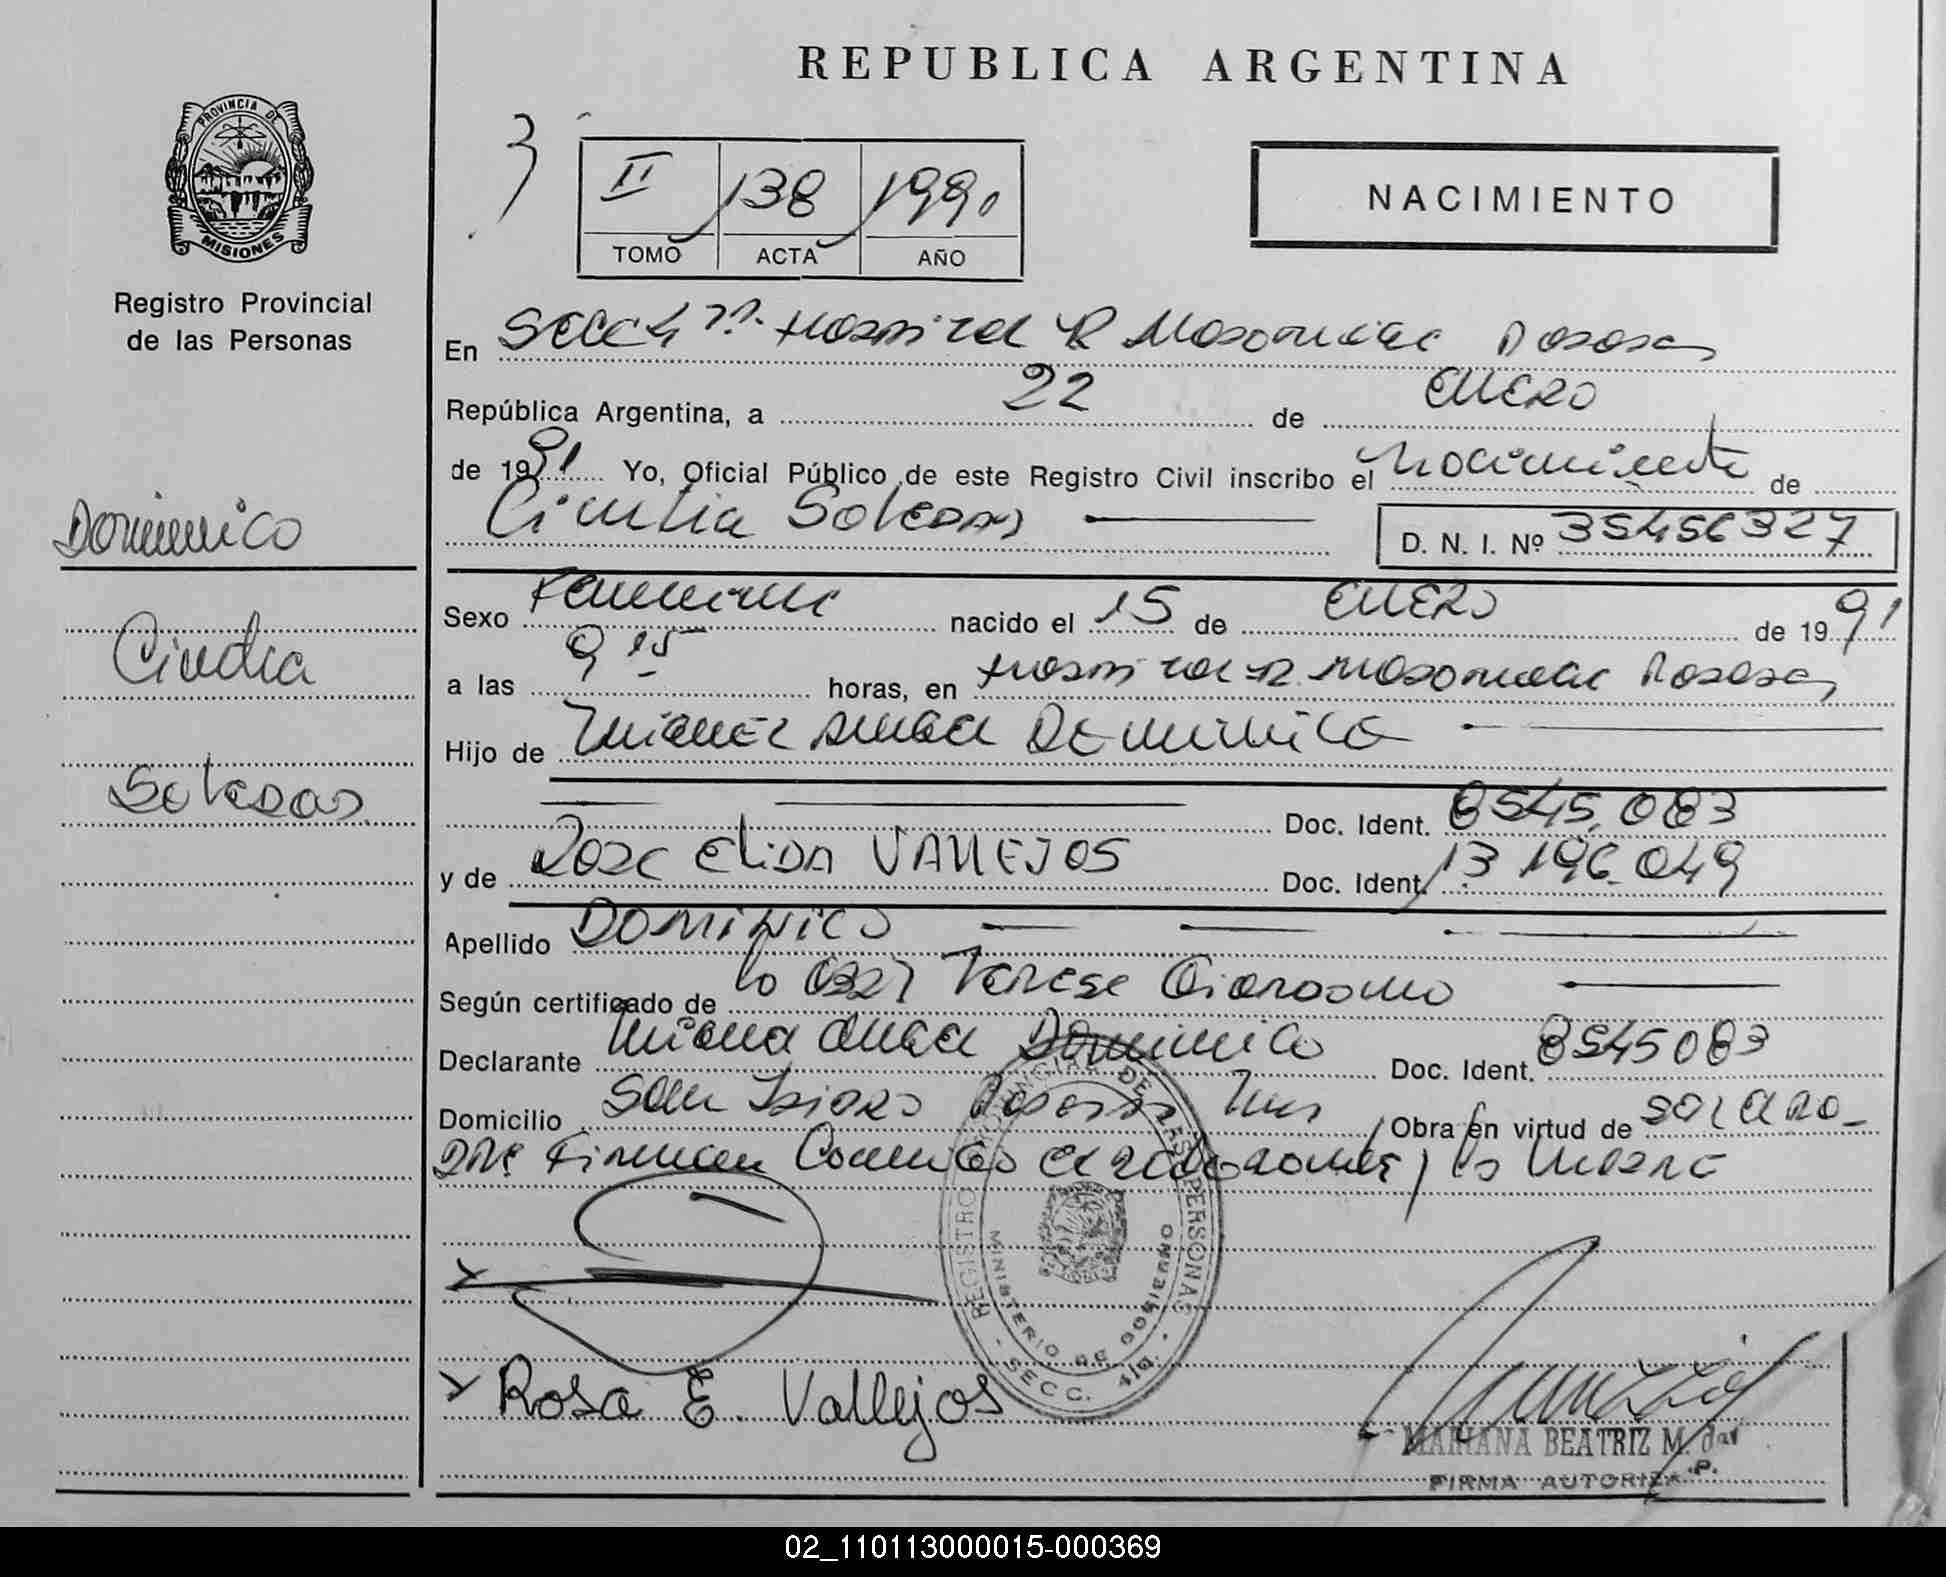 REPUBLICA ARGENTINA
PROVINCIA DE
MISIONES
Registro Provincial
de las Personas
3
II 138 1990
TOMO ACTA AÑO
NACIMIENTO
En Secc 4ta. Hospital R Madariaga Posadas
República Argentina, a 22 de ENERO
de 1991 Yo, Oficial Público de este Registro Civil inscribo el nacimiento de
Cinthia Soledad
D. N. I. Nº 35456327
Dominico
Cinthia
Soledad
Sexo Femenino nacido el 15 de ENERO de 1991
a las 9 15 horas, en Hospital R. Madariaga Posadas
Hijo de Miguel Angel Dominico
Doc. Ident. 8545.083
y de Rosa Elida VALLEJOS Doc. Ident. 13 196.049
Apellido DOMINICO
Según certificado de la Obst Terese
Declarante Miguel Angel Dominico Doc. Ident. 8545083
Domicilio San Isidro Posadas Mnes Obra en virtud de
Firman el declarante y la Madre
REGISTRO PROVINCIAL DE LAS PERSONAS
MINISTERIO DE GOBIERNO
SECC. 4ta.
Rosa E. Vallejos
MARIANA BEATRIZ M.
FIRMA AUTORIZ
02_110113000015-000369